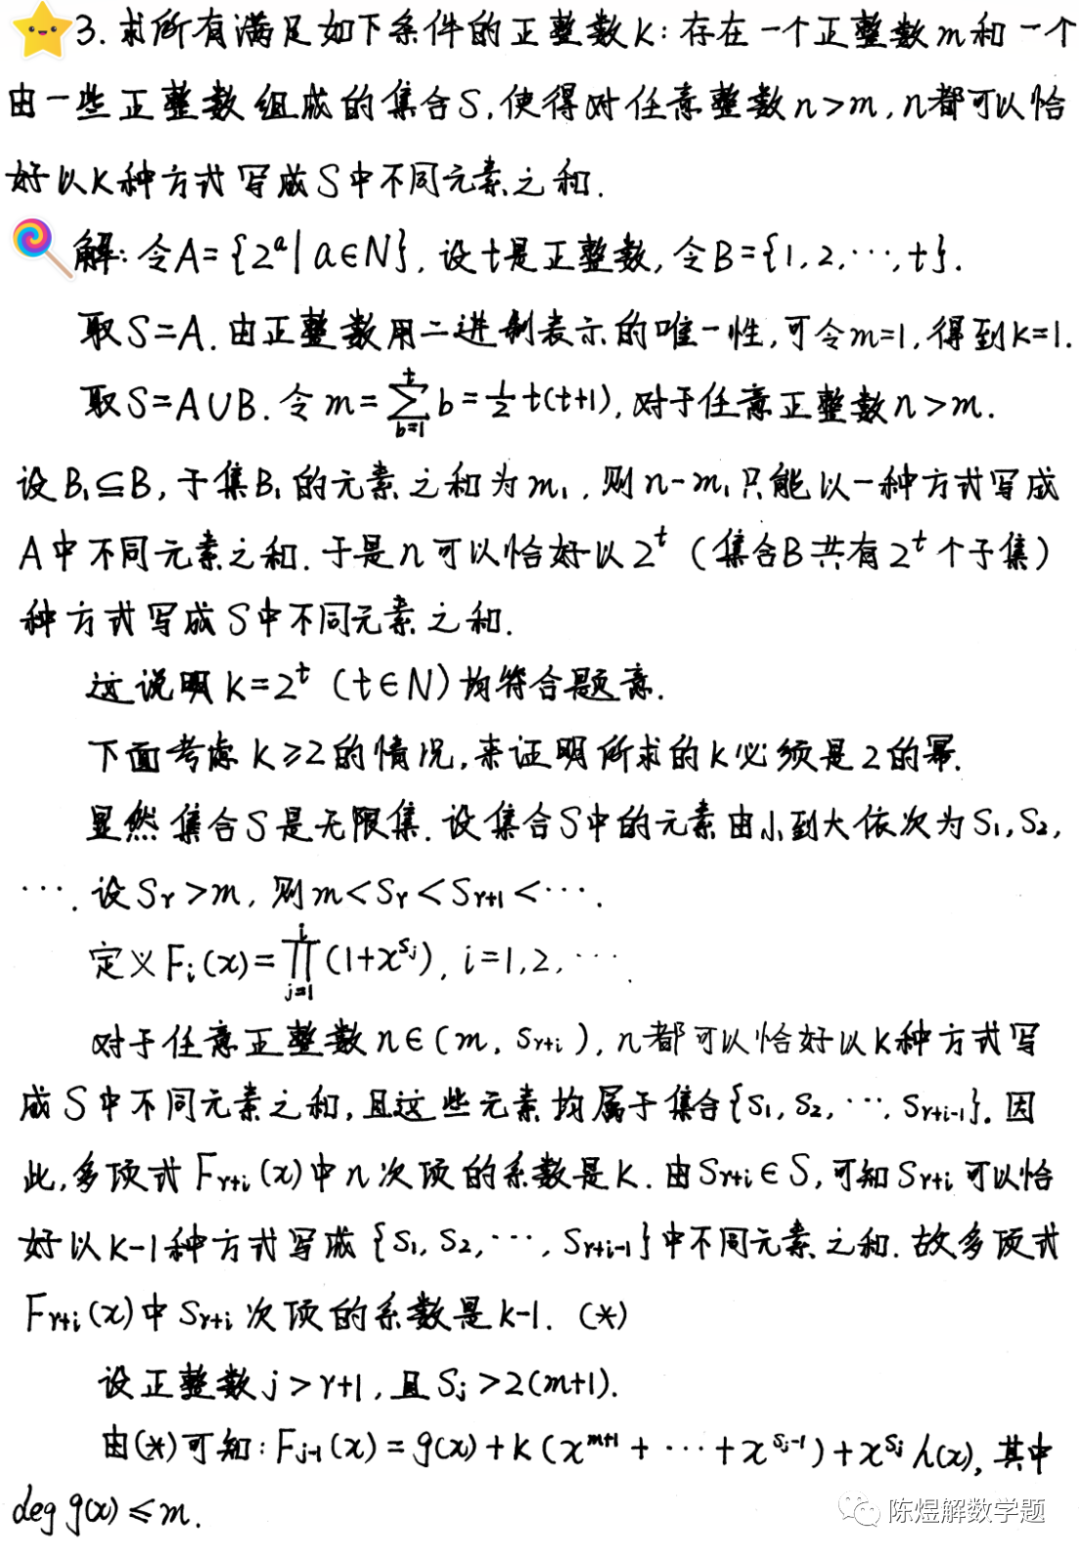 3. 求所有满足如下条件的正整数k: 存在一个正整数m和一个
由一些正整数组成的集合S, 使得对任意整数n>m, n都可以恰
好以k种方式写成S中不同元素之和.
解: 令A={2^a | a∈N}, 设t是正整数, 令B={1, 2, ⋯, t}.
取S=A. 由正整数用二进制表示的唯一性, 可令m=1, 得到k=1.
取S=A∪B. 令m=∑_{b=1}^{t} b=½t(t+1), 对于任意正整数n>m.
设B₁⊆B, 于集B₁的元素之和为m₁, 则n-m₁只能以一种方式写成
A中不同元素之和. 于是n可以恰好以2^t (集合B共有2^t个子集)
种方式写成S中不同元素之和.
这说明k=2^t (t∈N)均符合题意.
下面考虑k≥2的情况, 来证明所求的k必须是2的幂.
显然集合S是无限集. 设集合S中的元素由小到大依次为S₁, S₂,
⋯. 设S_r>m, 则m<S_r<S_{r+1}<⋯.
定义F_i(x)=∏_{j=1}^{i}(1+x^{S_j}), i=1, 2, ⋯.
对于任意正整数n∈(m, S_{r+i}), n都可以恰好以k种方式写
成S中不同元素之和, 且这些元素均属于集合{S₁, S₂, ⋯, S_{r+i-1}}. 因
此, 多项式F_{r+i}(x)中n次项的系数是k. 由S_{r+i}∈S, 可知S_{r+i}可以恰
好以k-1种方式写成{S₁, S₂, ⋯, S_{r+i-1}}中不同元素之和. 故多项式
F_{r+i}(x)中S_{r+i}次项的系数是k-1. (*)
设正整数j>r+1, 且S_j>2(m+1).
由(*)可知: F_{j-1}(x)=g(x)+k(x^{m+1}+⋯+x^{S_j-1})+x^{S_j}h(x), 其中
deg g(x)≤m.
陈煜解数学题